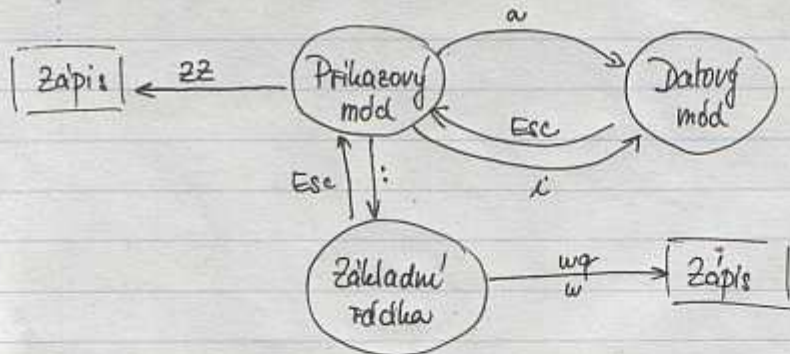 a
Zápis
ZZ
Příkazový
mód
Datový
mód
Esc
i
Esc
:
Základní
řádka
wq
w
Zápis